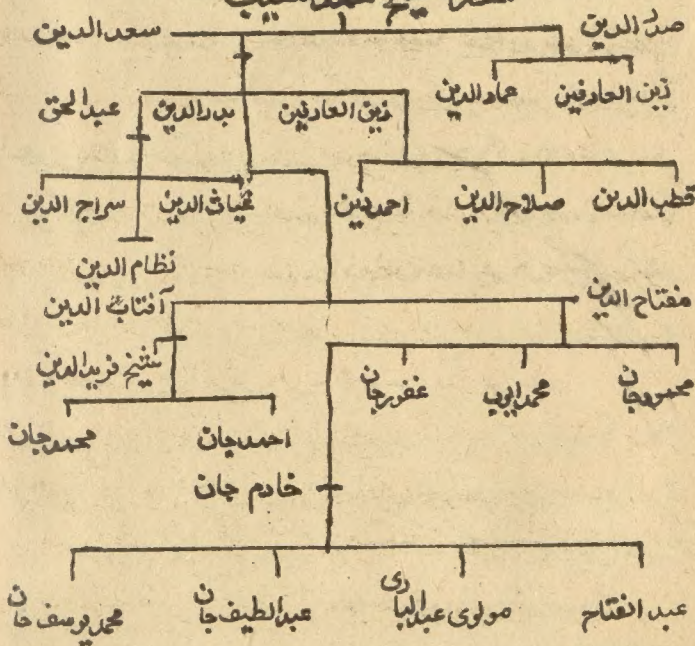 صدر الدین سعد الدین
زین العارفین عماد الدین
زین العارفین بدرالدین عبدالحق
قطب الدین صلاح الدین احمد دین غیاث الدین سراج الدین
نظام الدین
مفتاح الدین آفتاب الدین
شیخ فرید الدین
محمود جان محمد ایوب غفور جان
احمد جان محمد جان
خادم جان
عبد الفتاح مولوی عبدالباری عبدالطیف جان محمد یوسف جان